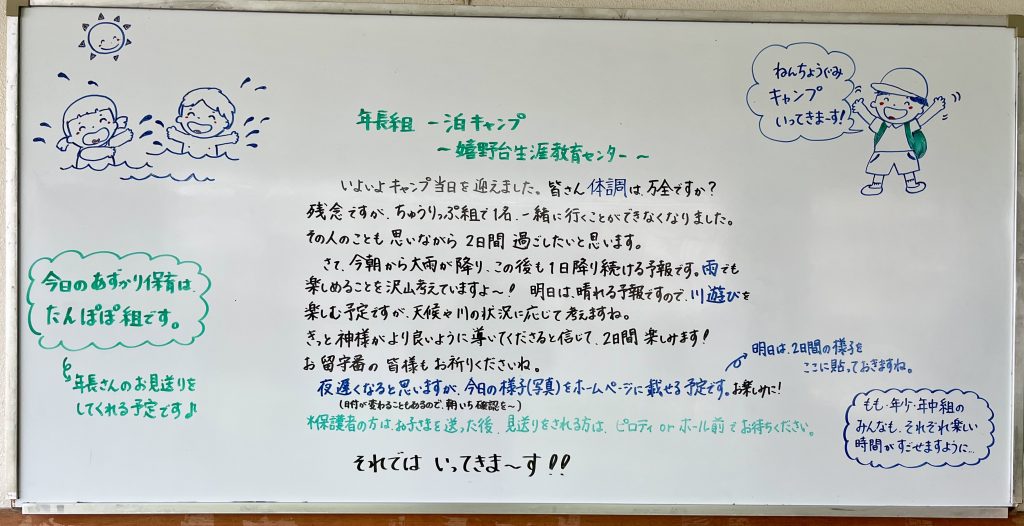 ねんちょうぐみ
キャンプ
いってきまーす!
年長組 一泊キャンプ
～嬉野台生涯教育センター～
いよいよキャンプ当日を迎えました。皆さん体調は万全ですか?
残念ですが、ちゅうりっぷ組で1名、一緒に行くことができなくなりました。
その人のことも思いながら2日間過ごしたいと思います。
さて、今朝から大雨が降り、この後も1日降り続ける予報です。雨でも
楽しめることを沢山考えていますよ～! 明日は、晴れる予報ですので、川遊びを
楽しむ予定ですが、天候や川の状況に応じて考えますね。
きっと神様がより良いように導いてくださると信じて、2日間楽しみます!
お留守番の皆様もお祈りくださいね。
夜遅くなると思いますが、今日の様子(写真)をホームページに載せる予定です。お楽しみに!
(日付が変わることもあるので、朝いち確認を～)
※保護者の方は、お子さまを送った後、見送りをされる方は、ピロティ or ホール前でお待ちください。
それでは いってきま～す!!
今日のあずかり保育は、
たんぽぽ組です。
年長さんのお見送りを
してくれる予定です♪
明日は、2日間の様子を
ここに貼っておきますね。
もも・年少・年中組の
みんなも、それぞれ楽しい
時間がすごせますように…